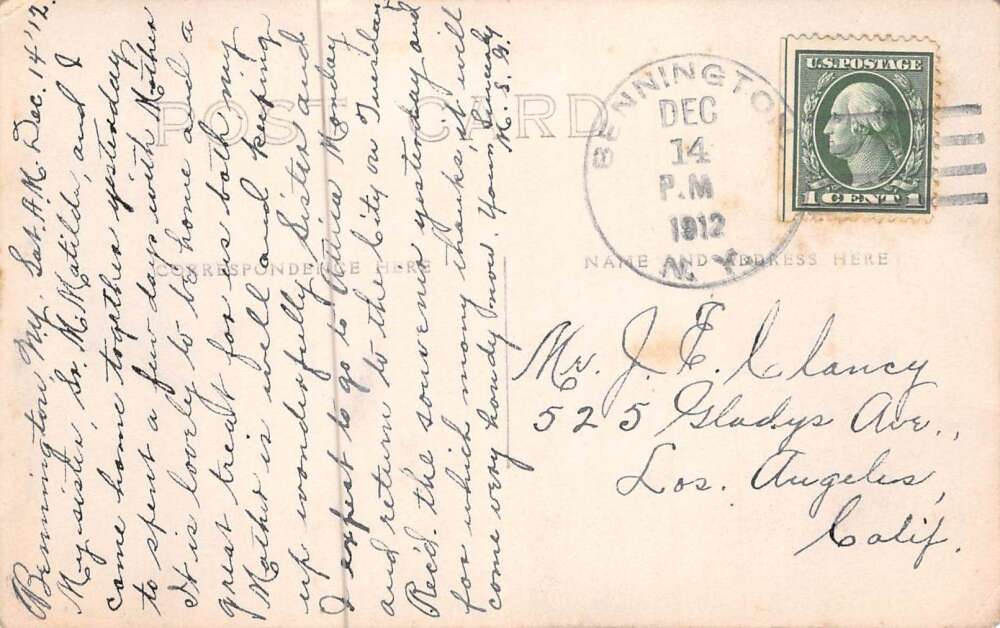 Bennington, N.Y. Sat. A.M. Dec. 14 '12.
My sister, Sr. M. Matilda, and I
came home together yesterday
to spent a few days with Mother
It is lovely to be home and a
great treat for us both my
Mother is well and keeping
up wonderfully Sister and
I expect to go to Attica Monday
and return to the City on Tuesday
Rec'd. the souvenir yesterday and
for which many thanks, it will
come very handy now. Yours Sincerely
M. E. F.
POST CARD
CORRESPONDENCE HERE
NAME AND ADDRESS HERE
BENNINGTON
DEC
14
P.M
1912
N.Y.
U.S. POSTAGE
1 CENT 1
Mr. J. E. Clancy
525 Gladys Ave.,
Los. Angeles,
Calif.